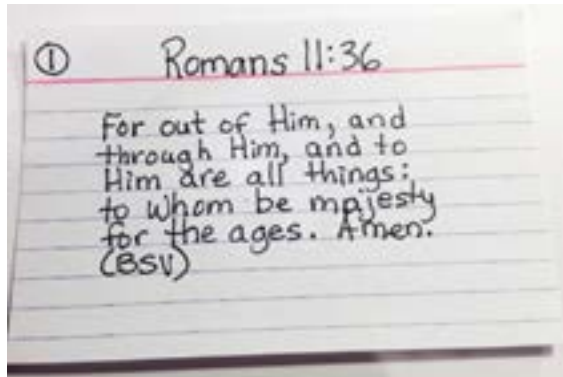 ① Romans 11:36
For out of Him, and
through Him, and to
Him are all things:
to whom be majesty
for the ages. Amen.
(BSV)